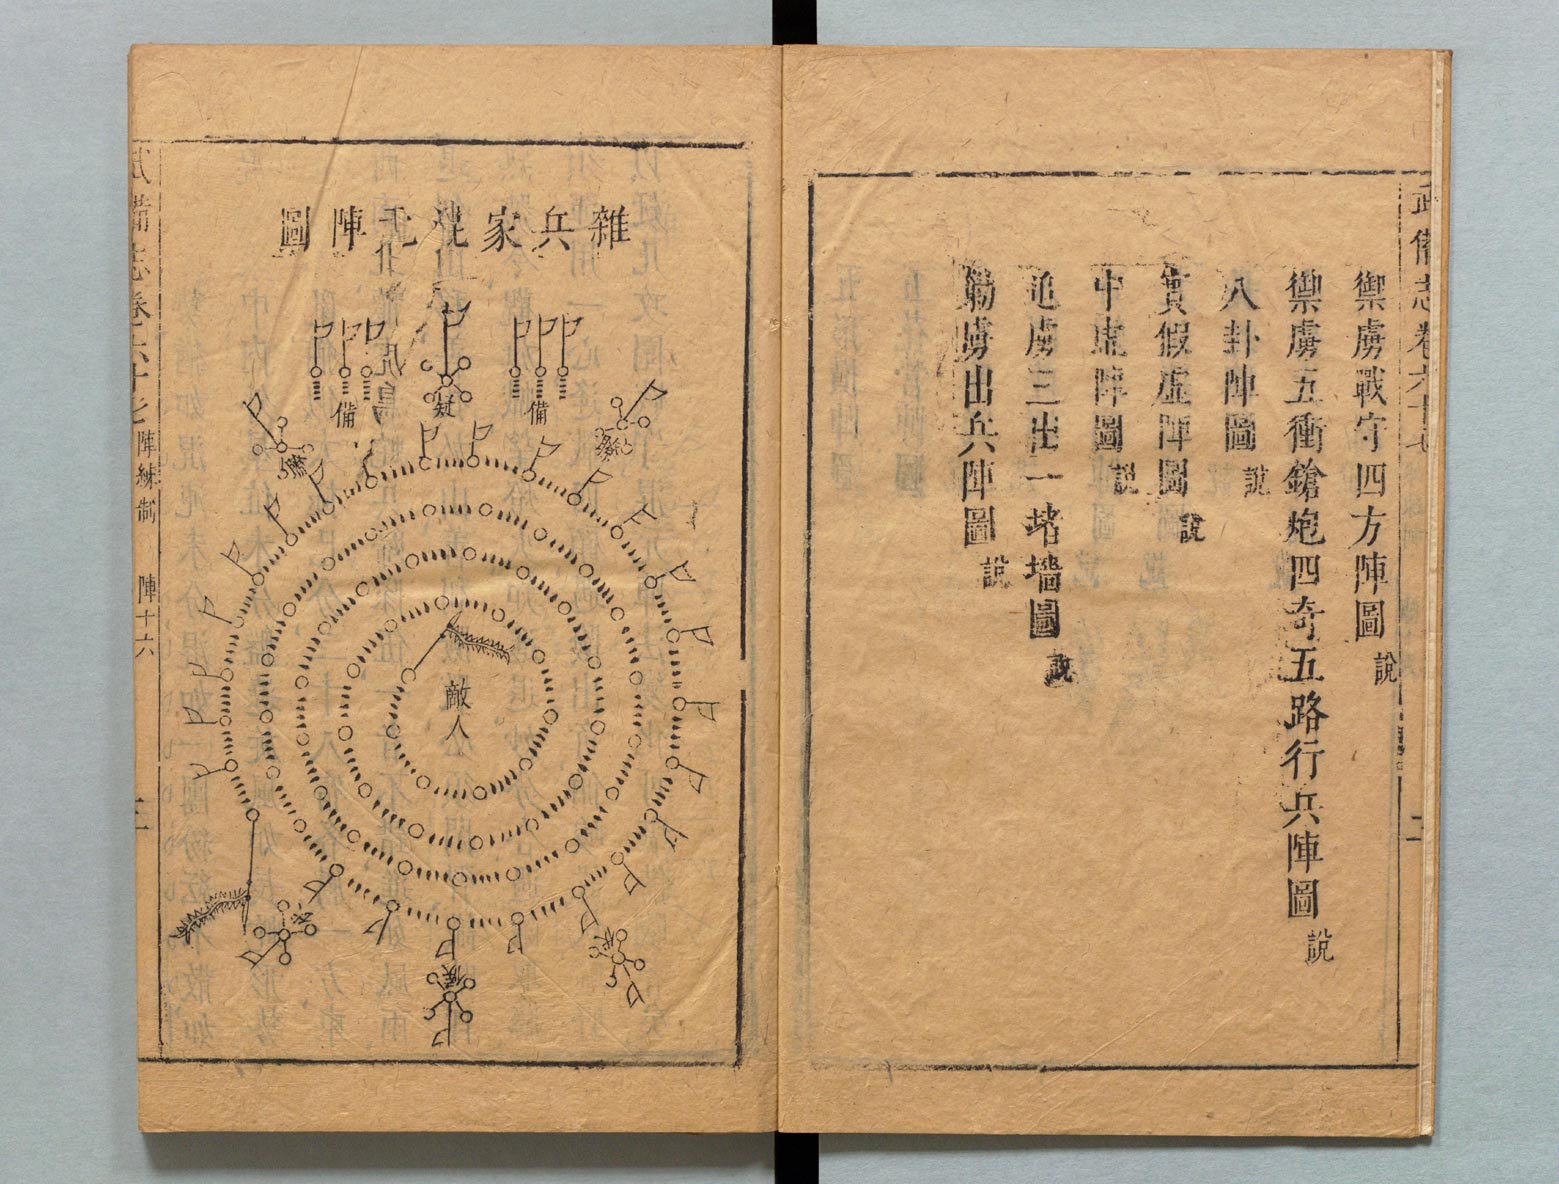 武備志卷六十七
二
禦虜戰守四方陣圖 說
禦虜五衝鎗炮四奇五路行兵陣圖 說
八卦陣圖 說
實假虛陣圖 說
中虛陣圖 說
追虜三出一堵墻圖 說
勦虜出兵陣圖 說
雜兵家混元陣圖
備
疑
備
敵人
武備志卷六十七 陣練制 陣十六
三